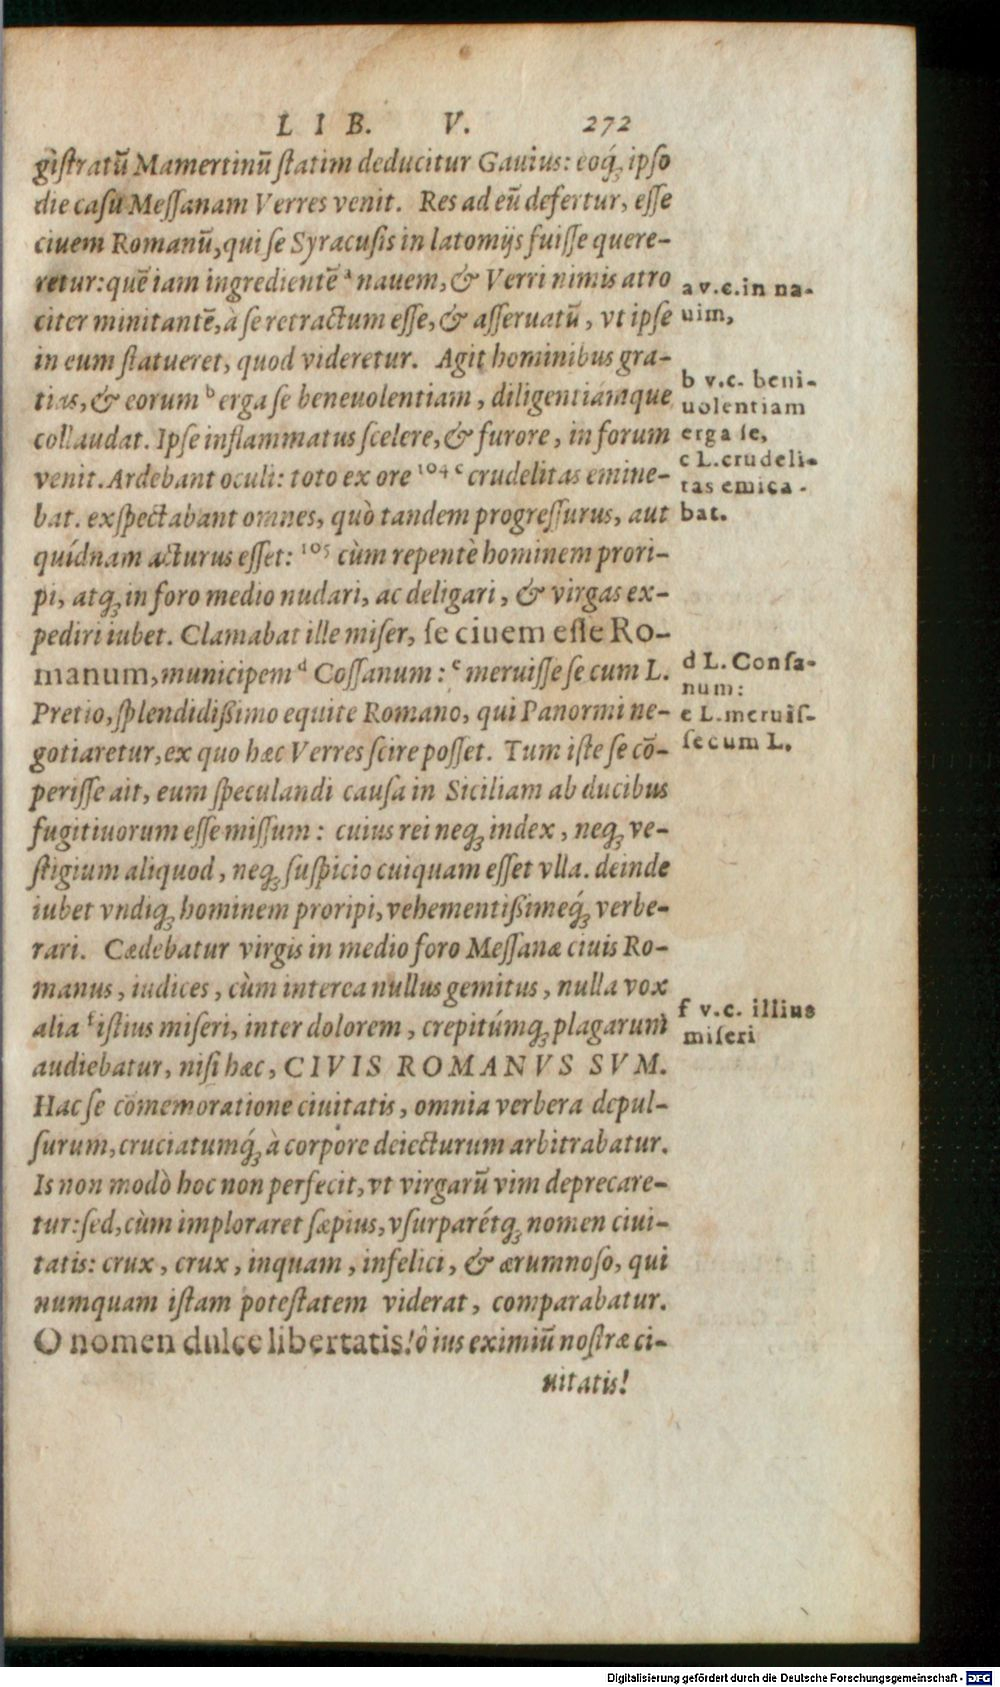 LIB. V. 272
giſtratū Mamertinū ſtatim deducitur Gauius: eoq́ꝫ ipſo
die caſu Meſſanam Verres venit. Res ad eū defertur, eſſe
ciuem Romanū, qui ſe Syracuſis in latomijs fuiſſe quere-
retur: quē iam ingredientē ᵃ nauem, & Verri nimis atro
citer minitantē, à ſe retractum eſſe, & aſſeruatū, vt ipſe
in eum ſtatueret, quod videretur. Agit hominibus gra-
tias, & eorum ᵇ erga ſe beneuolentiam, diligentiámque
collaudat. Ipſe inflammatus ſcelere, & furore, in forum
venit. Ardebant oculi: toto ex ore ¹⁰⁴ ᶜ crudelitas emine-
bat. exſpectabant omnes, quò tandem progreſſurus, aut
quídnam acturus eſſet: ¹⁰⁵ cùm repentè hominem prori-
pi, atqꝫ in foro medio nudari, ac deligari, & virgas ex-
pediri iubet. Clamabat ille miſer, ſe ciuem eſſe Ro-
manum, municipem ᵈ Coſſanum: ᵉ meruiſſe ſe cum L.
Pretio, ſplendidißimo equite Romano, qui Panormi ne-
gotiaretur, ex quo hæc Verres ſcire poſſet. Tum iſte ſe cō-
periſſe ait, eum ſpeculandi cauſa in Siciliam ab ducibus
fugitiuorum eſſe miſſum: cuius rei neqꝫ index, neqꝫ ve-
ſtigium aliquod, neqꝫ ſuſpicio cuiquam eſſet vlla. deinde
iubet vndiqꝫ hominem proripi, vehementißimeq́ꝫ verbe-
rari. Cædebatur virgis in medio foro Meſſanæ ciuis Ro-
manus, iudices, cùm interea nullus gemitus, nulla vox
alia ᶠ iſtius miſeri, inter dolorem, crepitúmqꝫ plagarum
audiebatur, niſi hæc, CIVIS ROMANVS SVM.
Hac ſe cōmemoratione ciuitatis, omnia verbera depul-
ſurum, cruciatumq́ꝫ à corpore deiecturum arbitrabatur.
Is non modò hoc non perfecit, vt virgarū vim deprecare-
tur: ſed, cùm imploraret ſæpius, vſurparétqꝫ nomen ciui-
tatis: crux, crux, inquam, infelici, & ærumnoſo, qui
numquam iſtam poteſtatem viderat, comparabatur.
O nomen dulce libertatis! ô ius eximiū noſtræ ci-
uitatis!
a v.c. in na-
uim,
b v.c. beni-
uolentiam
erga ſe,
c L. crudeli-
tas emica-
bat.
d L. Conſa-
num:
e L. meruiſ-
ſe cum L.
f v.c. illius
miſeri
Digitalisierung gefördert durch die Deutsche Forschungsgemeinschaft - DFG